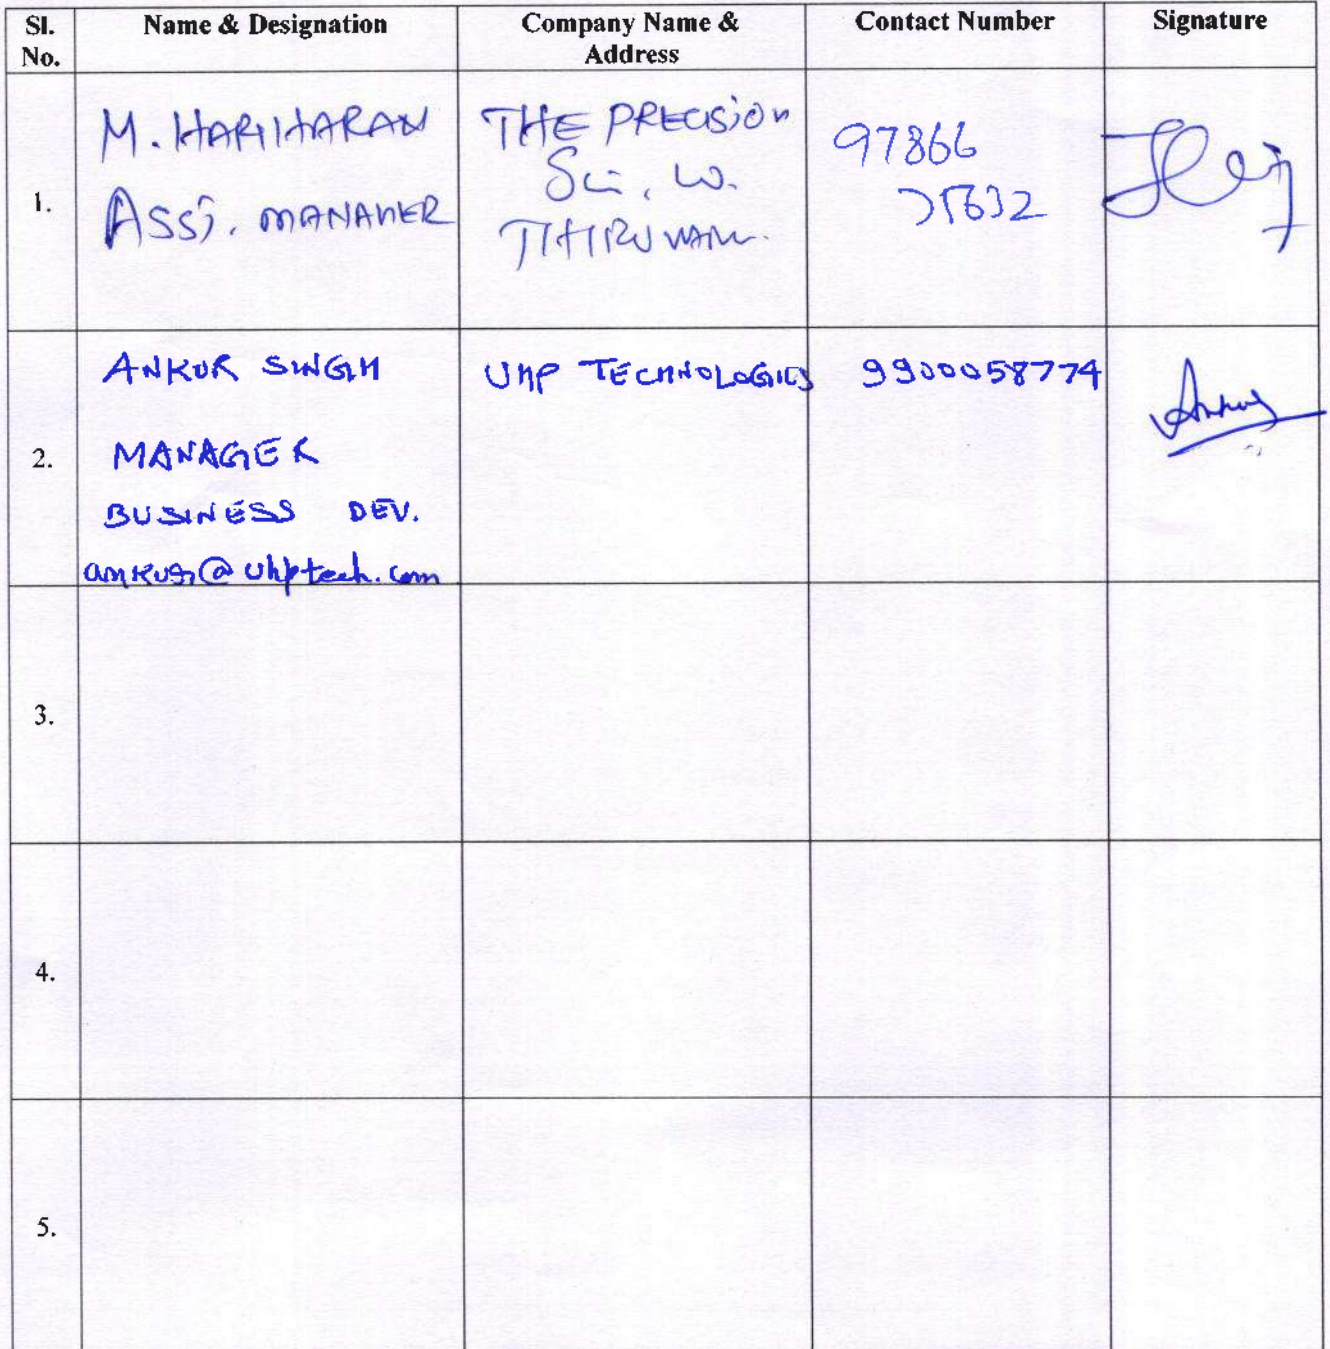 Sl. No. Name & Designation Company Name & Address Contact Number Signature
1.
M. HARIHARAN
ASST. MANAGER
THE PRECISION
Sci. Co.
97866
2.
ANKUR SINGH
MANAGER
BUSINESS DEV.
ankur@uhptech.com
UHP TECHNOLOGIES
9900058774
Ankur
3.
4.
5.